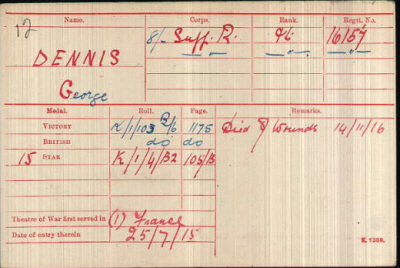 Name. Corps. Rank. Regtl. No.
12
DENNIS 8/- Suff. R. Pte. 16157
George
Medal. Roll. Page. Remarks.
VICTORY K/1/103 B/6 1175 Died of Wounds 14/11/16
BRITISH do do
15 STAR K/1/4/B2 105/B
Theatre of War first served in (1) France
Date of entry therein 25/7/15
K. 1380.